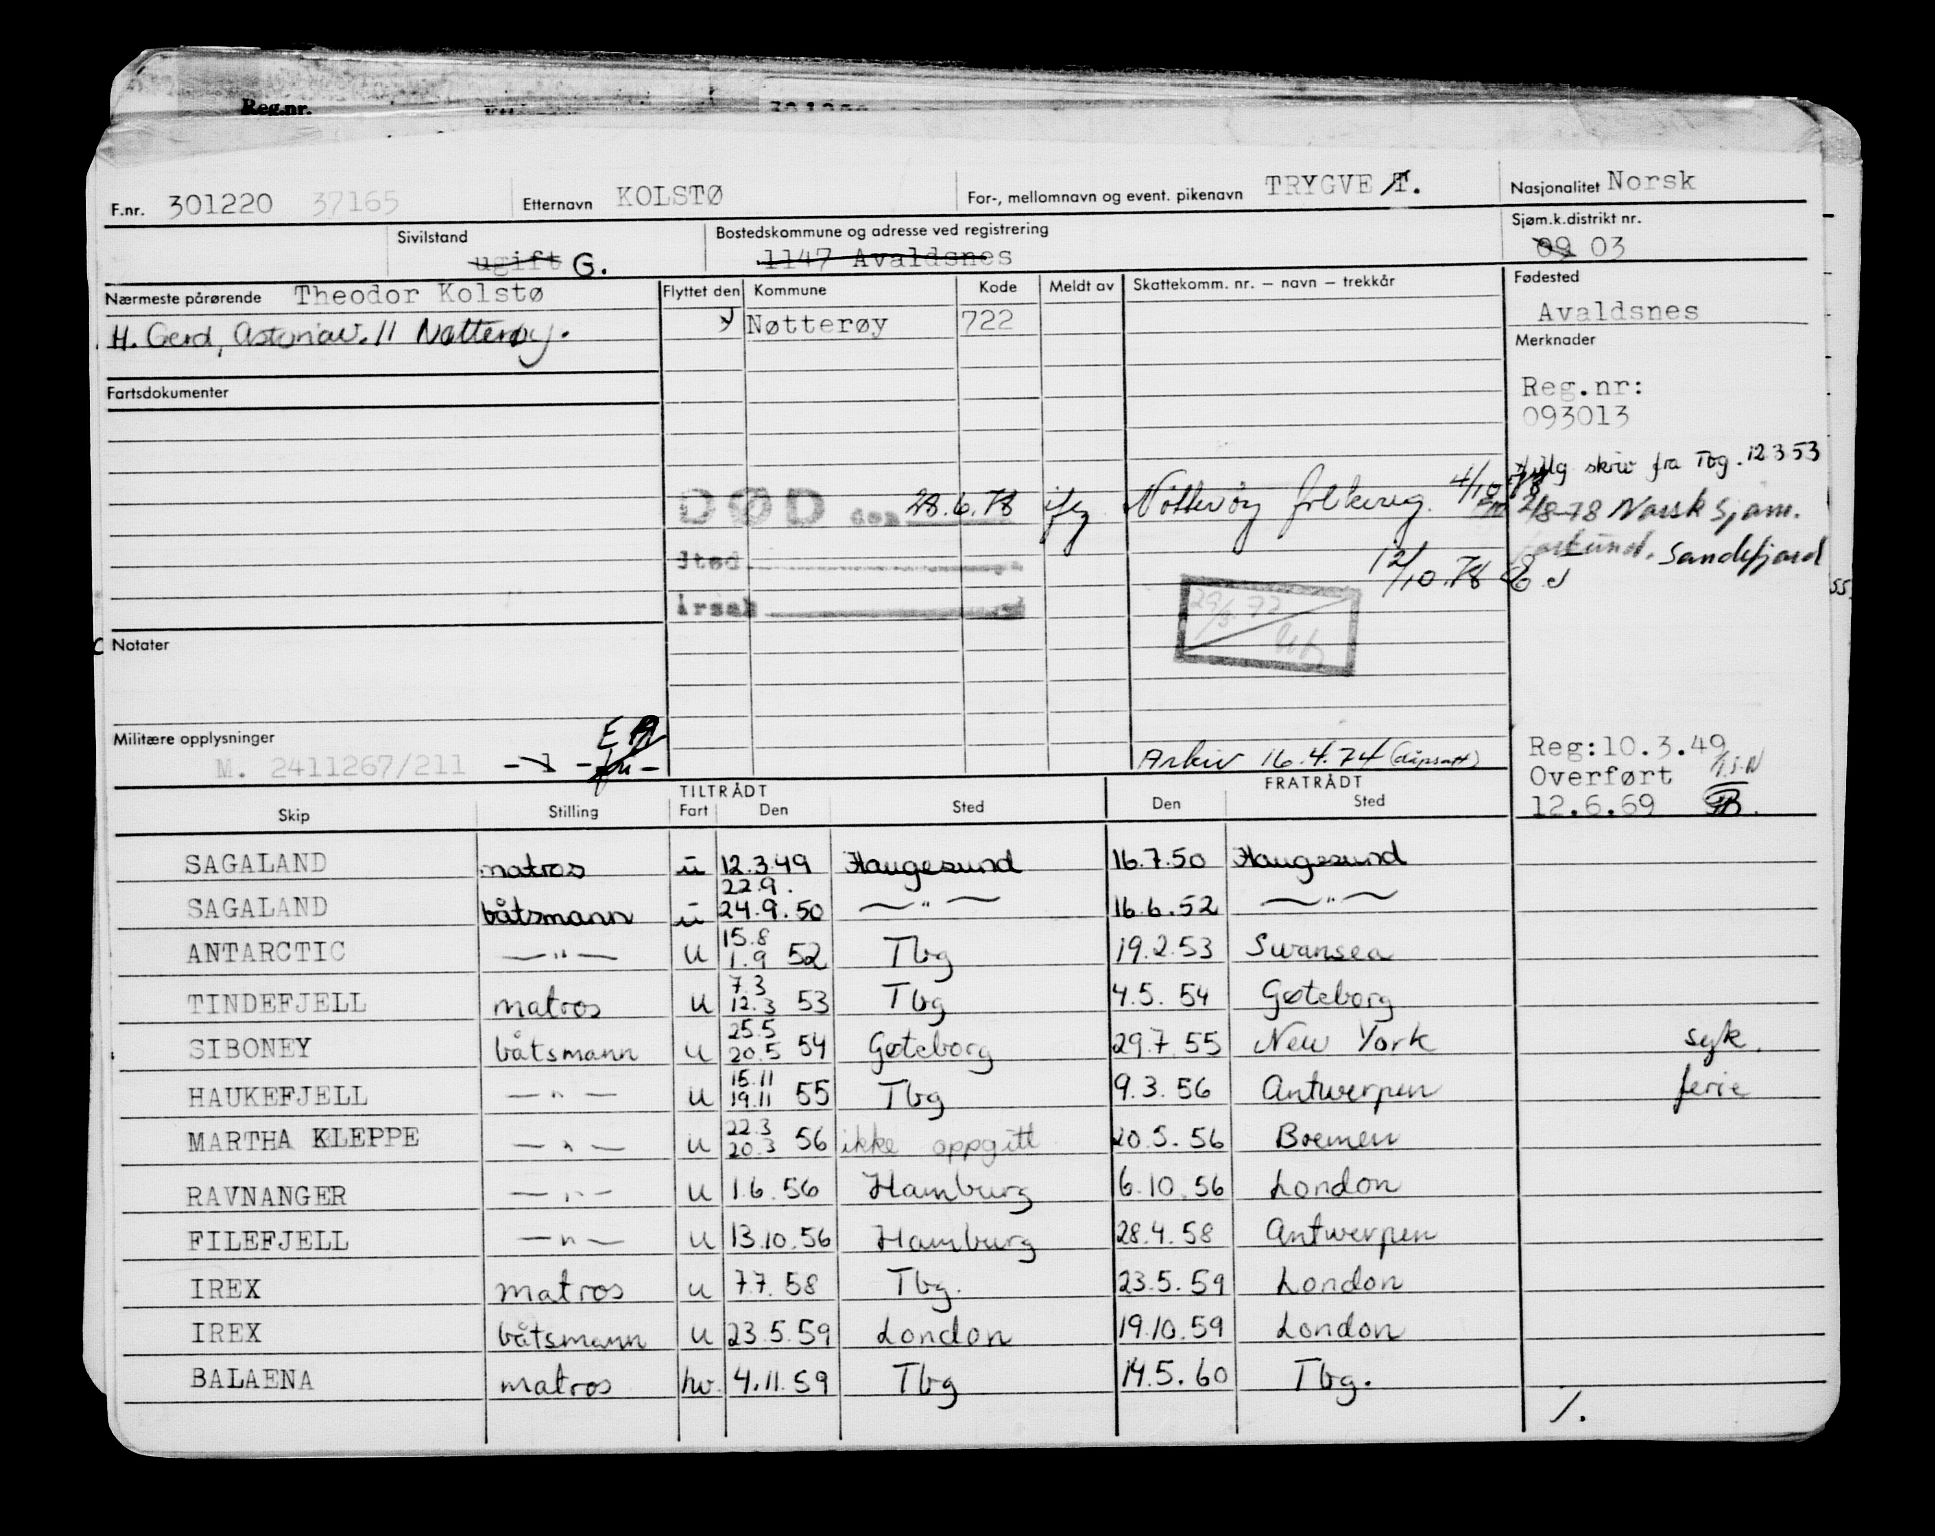 Reg.nr.
F.nr. 301220 37165 Etternavn KOLSTØ For-, mellomnavn og event. pikenavn TRYGVE T. Nasjonalitet Norsk
Sivilstand ugift G. Bostedskommune og adresse ved registrering 1147 Avaldsnes Sjøm.k.distrikt nr. 09 03
Nærmeste pårørende Theodor Kolstø Flyttet den Kommune Kode Meldt av Skattekomm. nr. – navn – trekkår Fødested
H. Gerd, Nøtterøy. Nøtterøy 722 Avaldsnes
Merknader
Fartsdokumenter Reg.nr:
093013
skriv fra Tbg. 12 3 53
DØD den 28.6.78 Nøtterøy folkereg. 4/10 78
2/8-78 Norsk Sjøm.
forbund. Sandefjord
Sted 12/10.78
Årsak 29/5.72
Notater
Militære opplysninger
M. 2411267/211
Arkiv 16.4.74
Reg:10.3.49
Overført
12.6.69
TILTRÅDT FRATRÅDT
Skip Stilling Fart Den Sted Den Sted
SAGALAND matros u 12.3.49 Haugesund 16.7.50 Haugesund
SAGALAND båtsmann u 22.9. 24.9.50 —"— 16.6.52 —"—
ANTARCTIC —"— u 15.8 1.9 52 Tbg 19.2.53 Swansea
TINDEFJELL matros u 7.3 12.3 53 Tbg 4.5.54 Gøteborg
SIBONEY båtsmann u 25.5 20.5 54 Gøteborg 29.7.55 New York syk.
HAUKEFJELL —"— u 15.11 19.11 55 Tbg 9.3.56 Antwerpen ferie
MARTHA KLEPPE —"— u 22.3 20.3 56 ikke oppgitt 20.5.56 Bremen
RAVNANGER —"— u 1.6.56 Hamburg 6.10.56 London
FILEFJELL —"— u 13.10.56 Hamburg 28.4.58 Antwerpen
IREX matros u 7.7.58 Tbg. 23.5.59 London
IREX båtsmann u 23.5.59 London 19.10.59 London
BALAENA matros hv. 4.11.59 Tbg 14.5.60 Tbg.